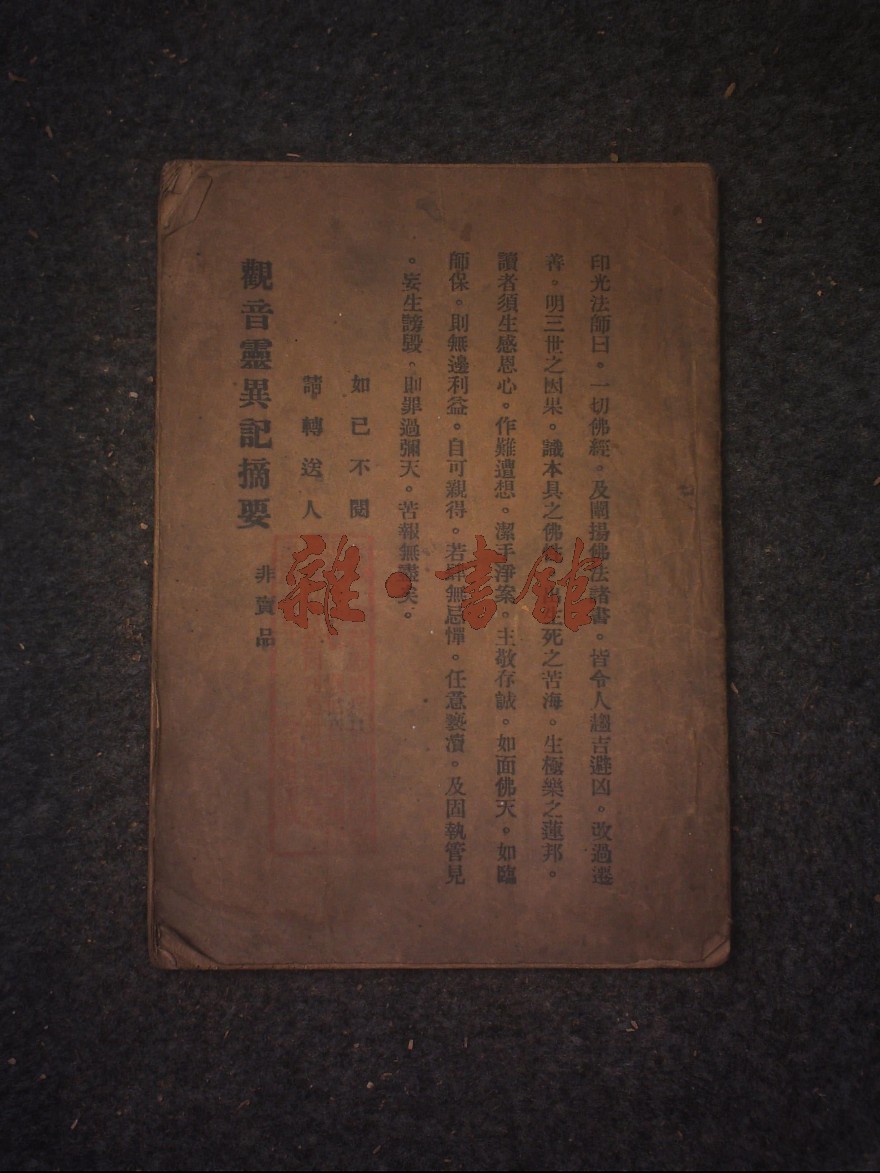 印光法師曰。一切佛經。及闡揚佛法諸書。皆令人趨吉避凶。改過遷
善。明三世之因果。識本具之佛性。出生死之苦海。生極樂之蓮邦。
讀者須生感恩心。作難遭想。潔手淨案。主敬存誠。如面佛天。如臨
師保。則無邊利益。自可親得。若肆無忌憚。任意褻瀆。及固執管見
。妄生謗毀。則罪過彌天。苦報無盡矣。
如已不閱
請轉送人
觀音靈異記摘要
非賣品
雜·書館